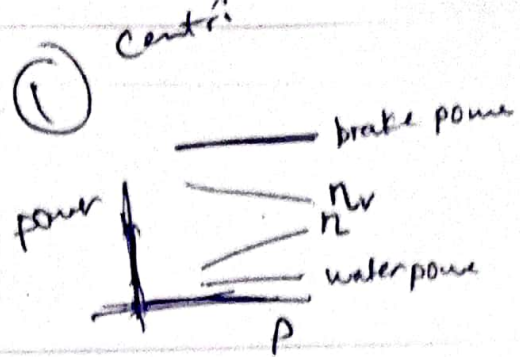 centri
1
brake powe
power
ηv
η
waterpowe
P